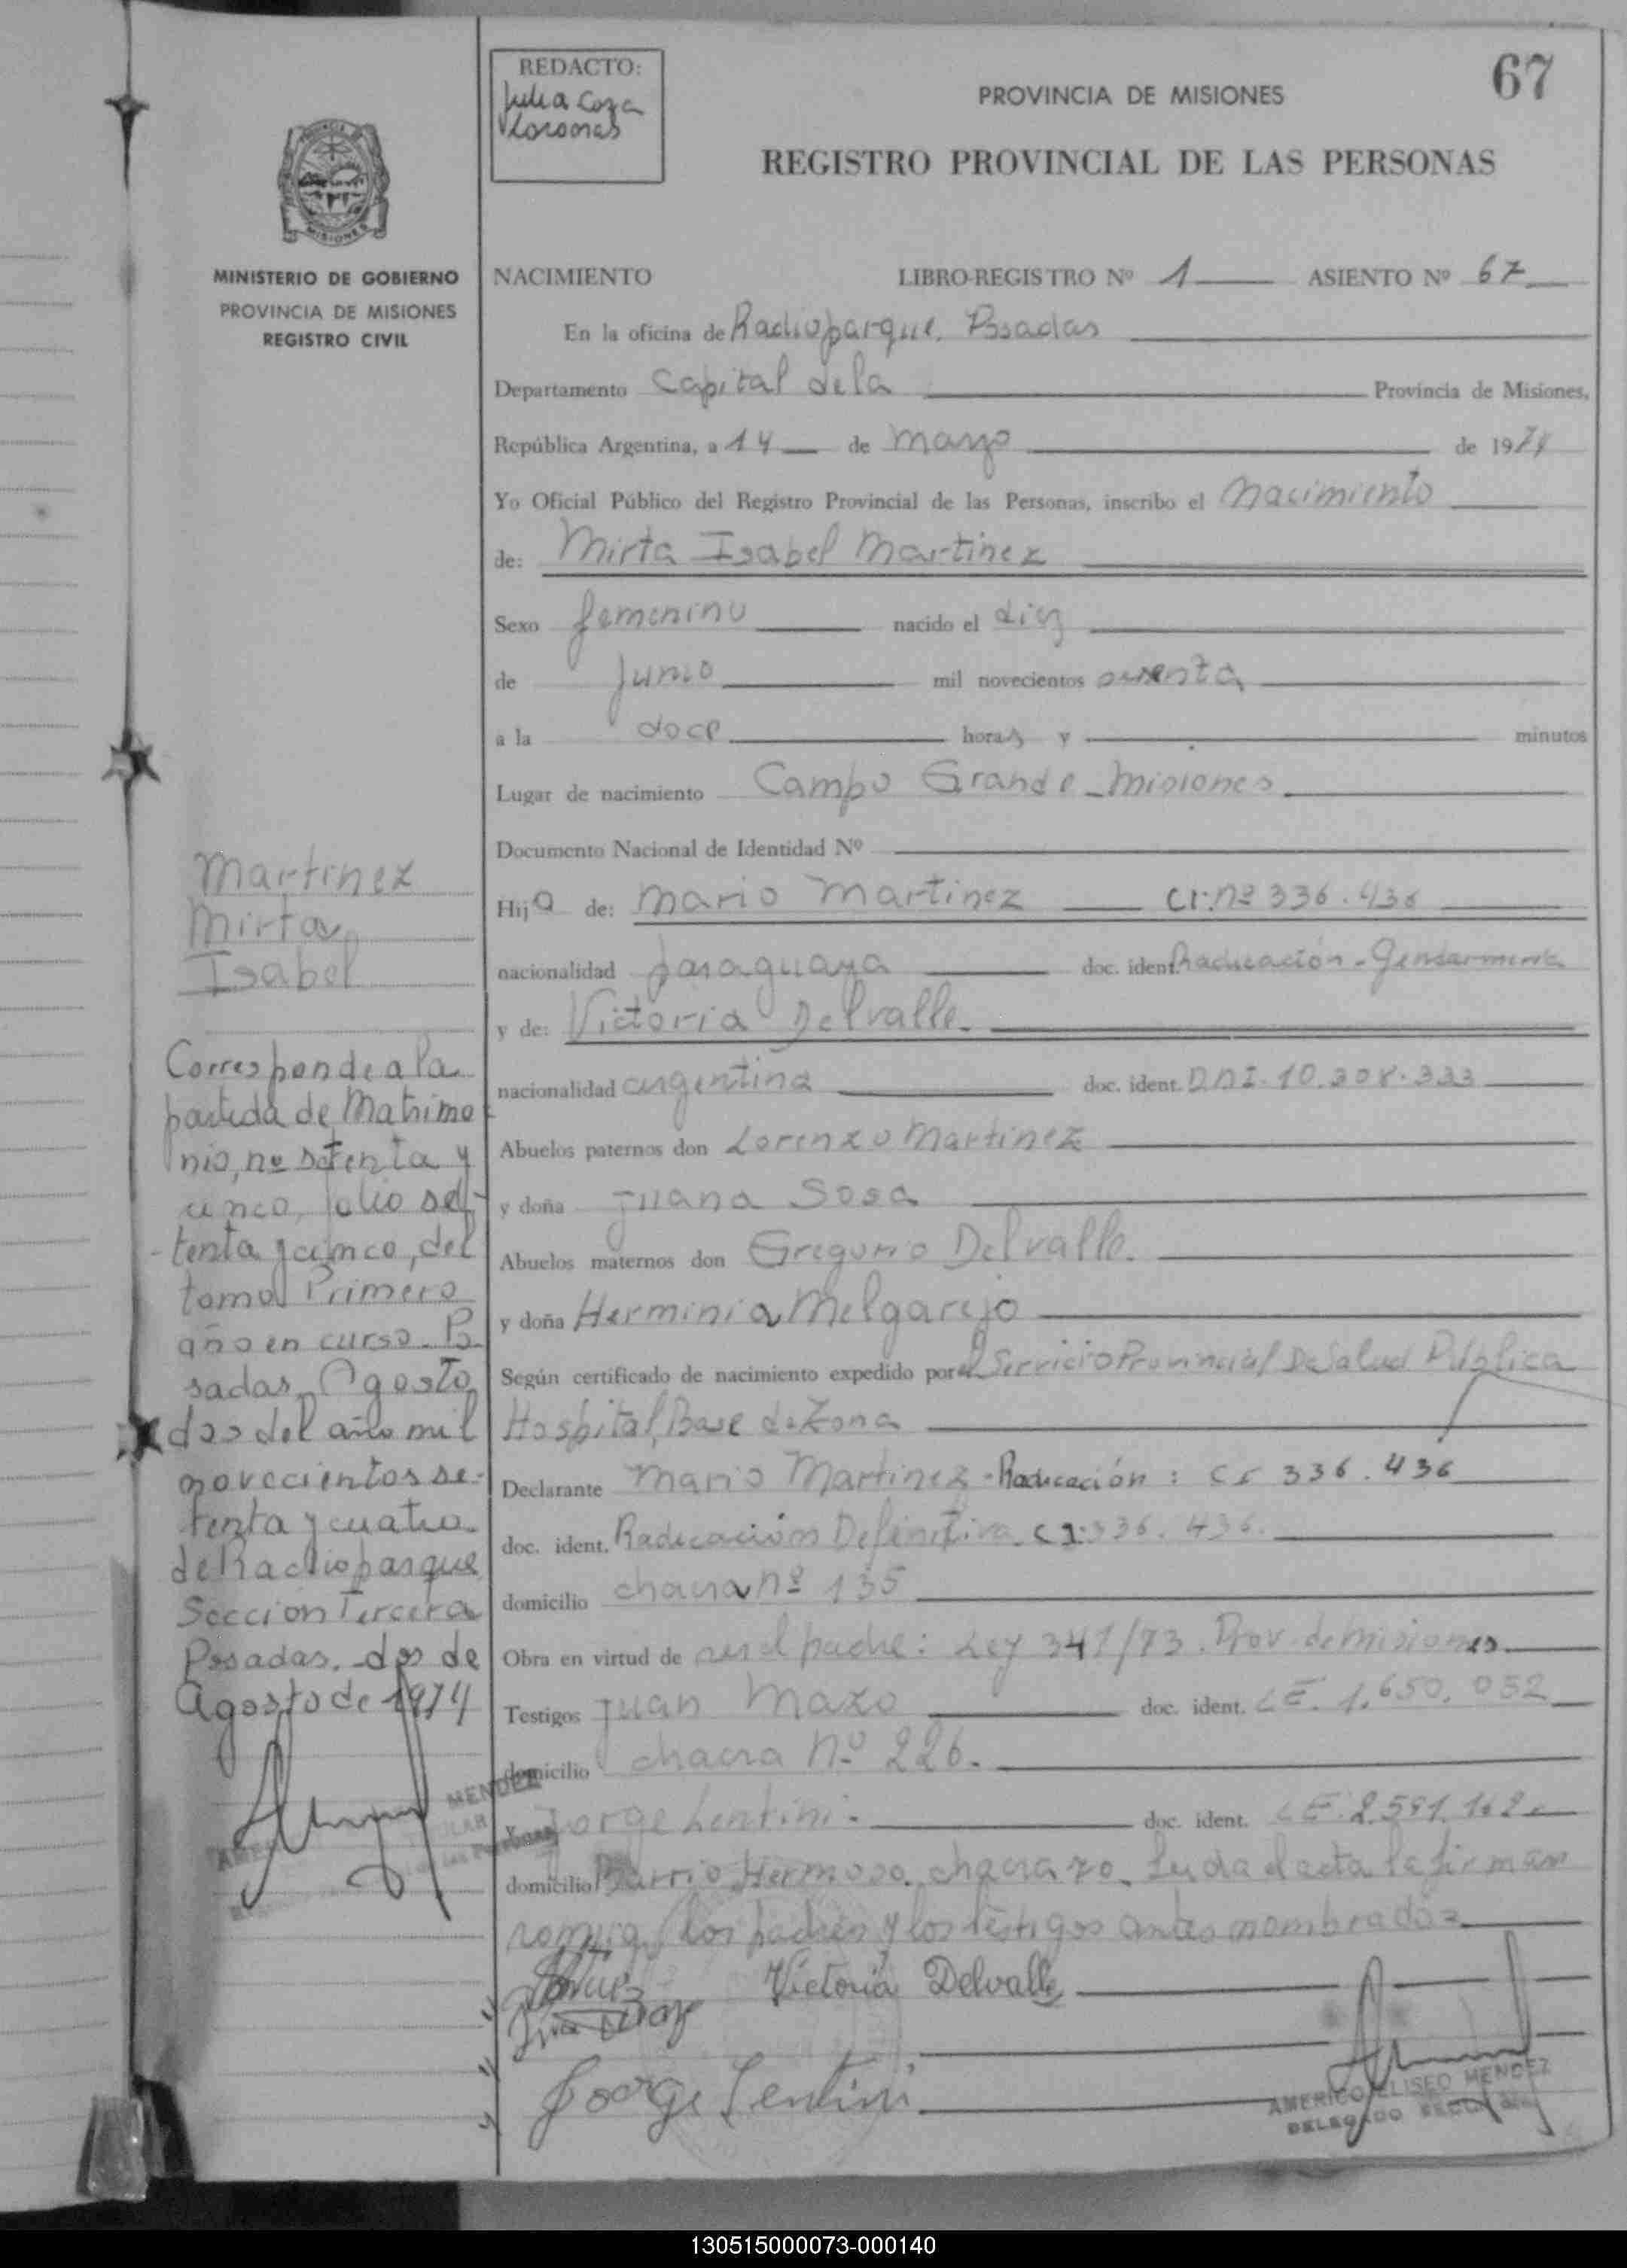 REDACTO:
Julia
67
PROVINCIA DE MISIONES
REGISTRO PROVINCIAL DE LAS PERSONAS
MINISTERIO DE GOBIERNO
PROVINCIA DE MISIONES
REGISTRO CIVIL
NACIMIENTO LIBRO-REGISTRO Nº 1 ASIENTO Nº 67
En la oficina de Radioparque, Posadas
Departamento Capital de la Provincia de Misiones,
República Argentina, a 14 de marzo de 1974
Yo Oficial Público del Registro Provincial de las Personas, inscribo el nacimiento
de: Mirta Isabel Martinez
Sexo femenino nacido el diez
de Junio mil novecientos
a la doce horas y minutos
Lugar de nacimiento Campo Grande - Misiones
Documento Nacional de Identidad Nº
Hija de: Mario Martinez CI: nº 336.436
nacionalidad paraguaya doc. ident. Radicación - Gendarmeria
y de: Victoria Delvalle.
nacionalidad argentina doc. ident. DNI. 10.308.333
Abuelos paternos don Lorenzo Martinez
y doña Juana Sosa
Abuelos maternos don Gregorio Delvalle.
y doña Herminia Melgarejo
Según certificado de nacimiento expedido por el Servicio Provincial De Salud Pública
Hospital Base de Zona
Declarante Mario Martinez - Radicación: CI 336.436
doc. ident. Radicación Definitiva CI: 336.436.
domicilio chacra nº 135
Obra en virtud de ser el padre: Ley 341/73. Prov. de misiones
Testigos Juan Mazo doc. ident. LE. 1.650.032
domicilio chacra nº 226.
y Jorge Lentini. doc. ident. LE. 2.591.162
domicilio Barrio Hermoso. chacra 70. Leida el acta la firman
conmigo los padres y los testigos antes nombrados
Victoria Delvalle
Jorge Lentini
AMERICO ELISEO MENDEZ
DELEGADO
Martinez
Mirta
Isabel
Corresponde a la
partida de Matrimo
nio, nº setenta y
cinco, folio se
tenta y cinco, del
tomo Primero
año en curso. Po
sadas, Agosto
dos del año mil
novecientos se-
tenta y cuatro.
de Radioparque
Seccion Tercera
Posadas. dos de
Agosto de 1974
MENDEZ
130515000073-000140